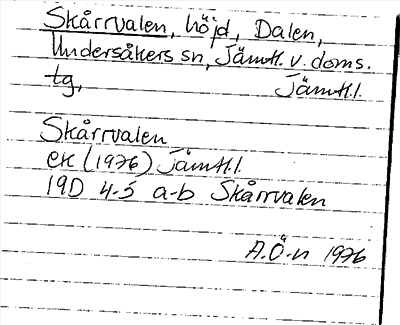 Skårrvalen, höjd, Dalen,
Undersåkers sn, Jämtl. v. doms.
tg, Jämtl.l.
Skårrvalen
ek (1976) Jämtl.l.
19D 4-5 a-b Skårrvalen
A.Ö-n 1976